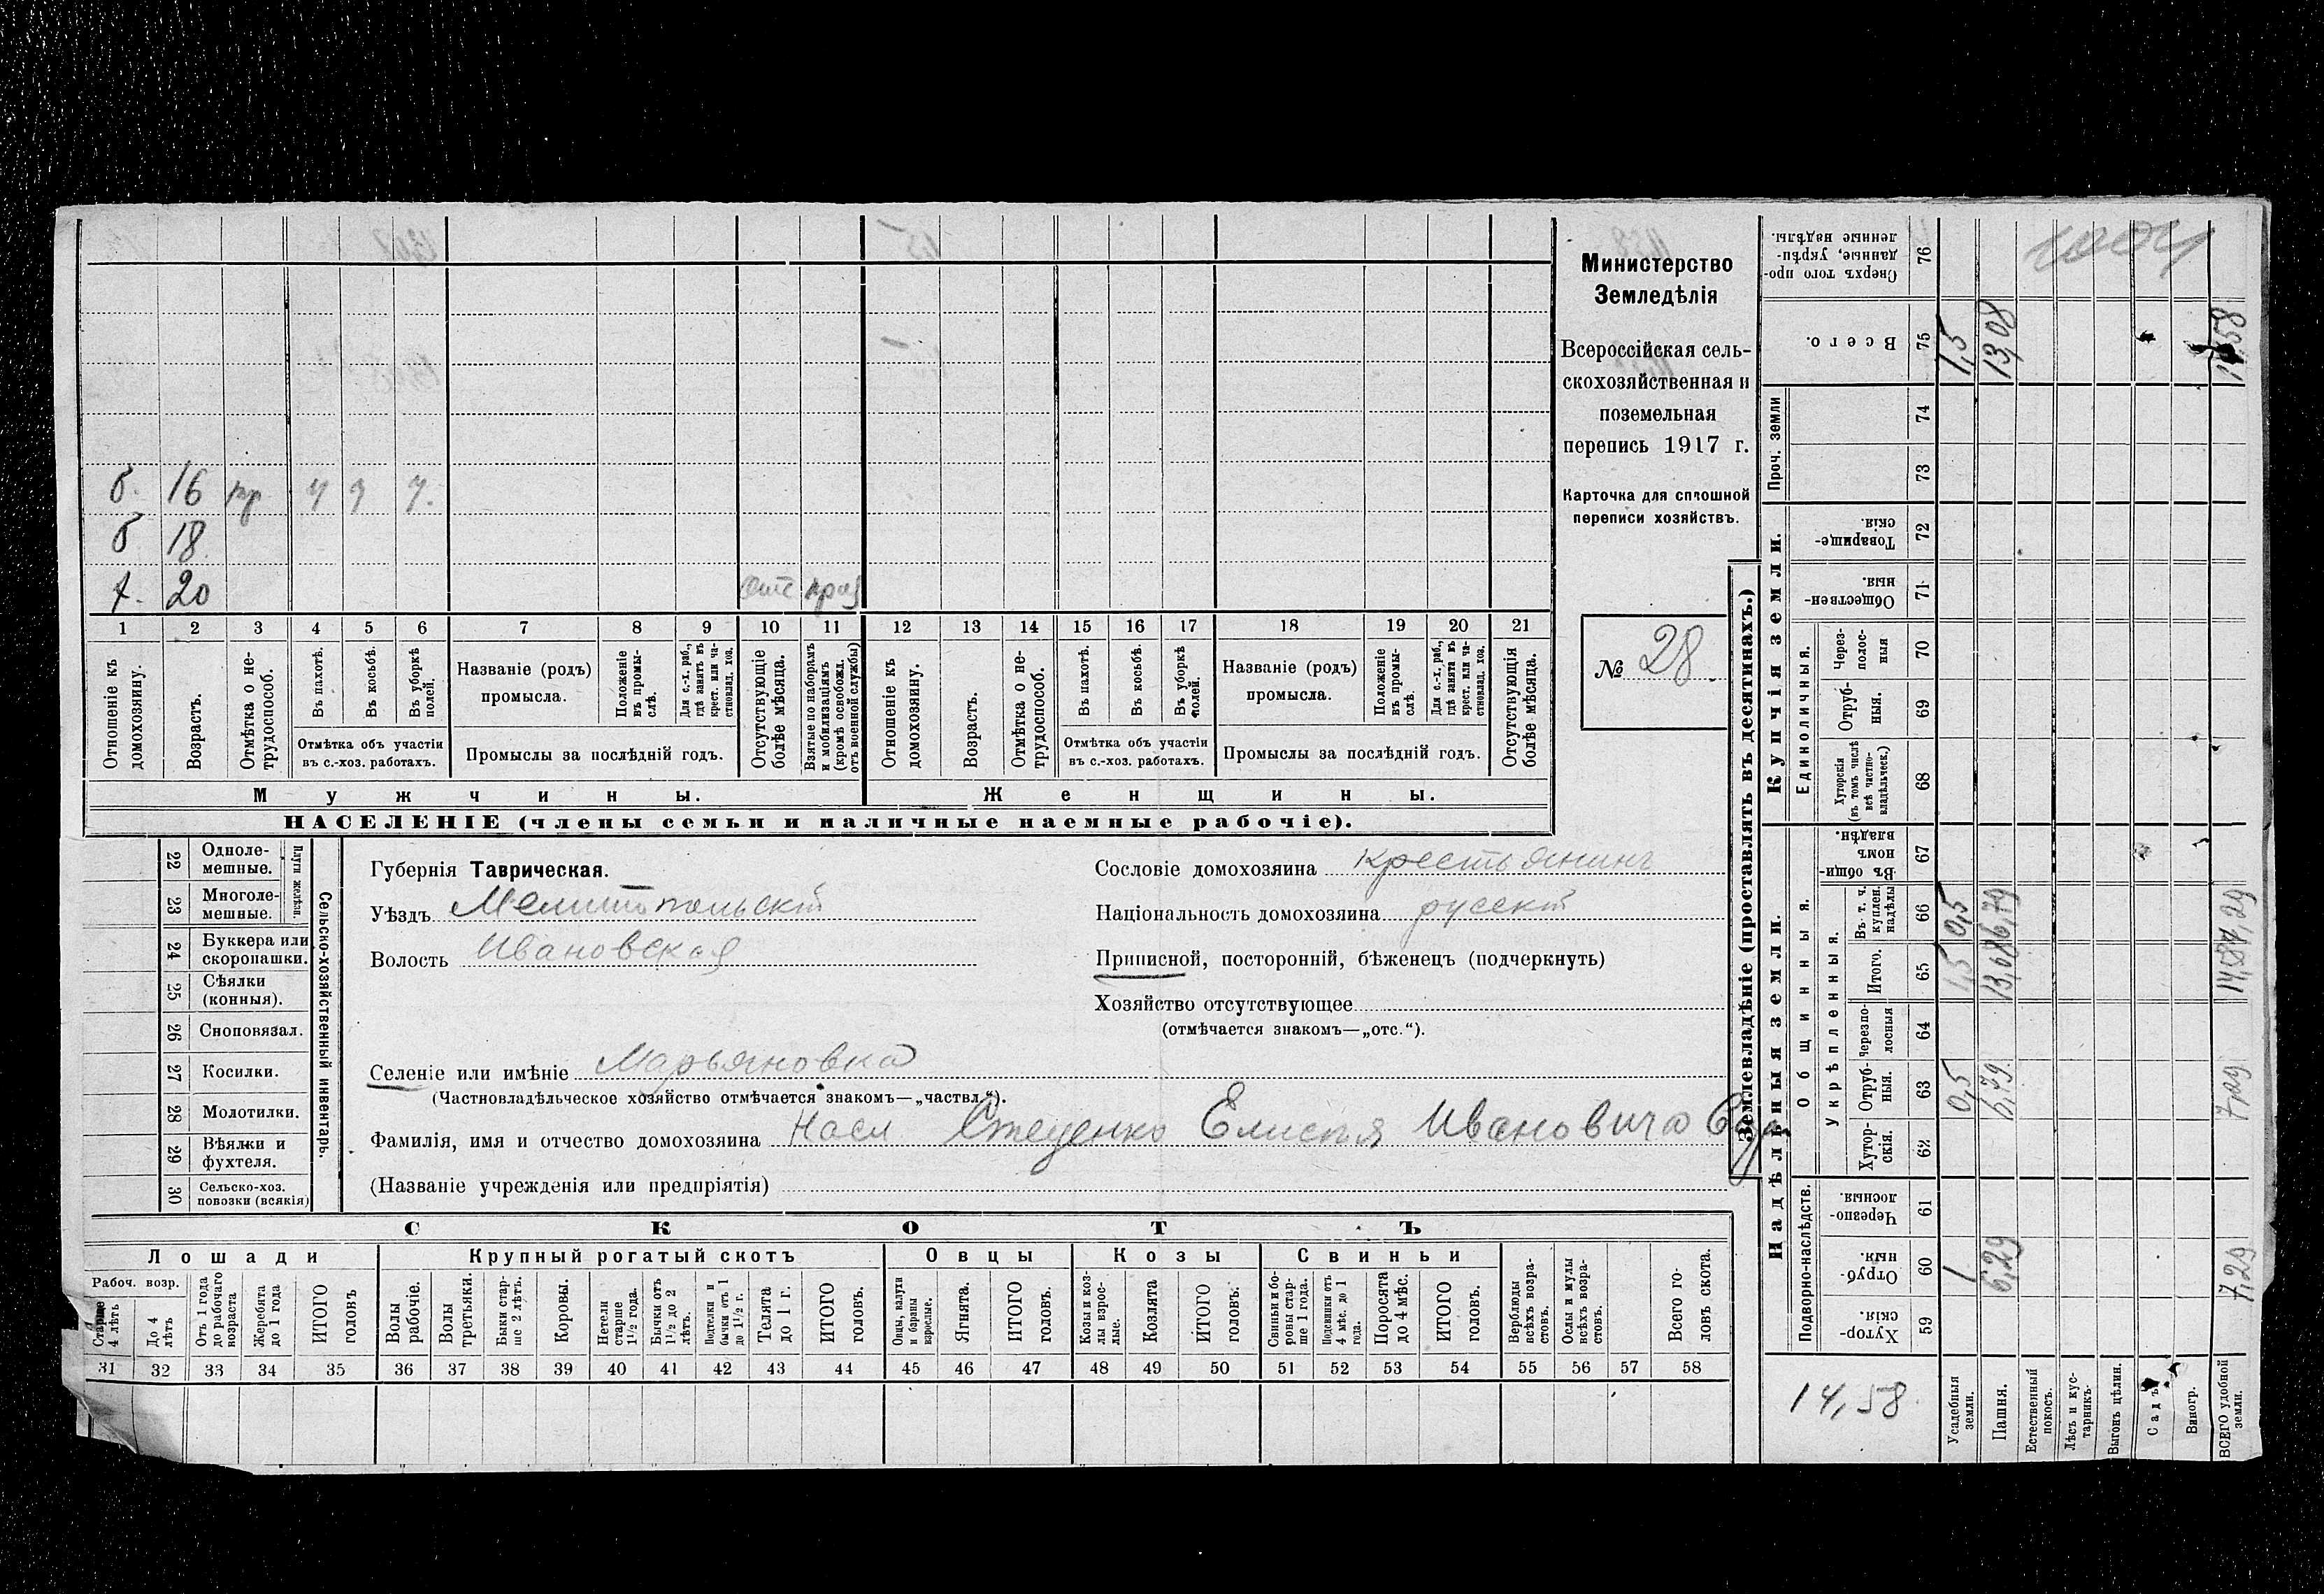 Министерство
Земледѣлія
Всероссійская сель-
скохозяйственная и
поземельная
перепись 1917 г.
Карточка для сплошной
переписи хозяйствъ.
№ 28.
б. 16
б 18
20
1 2 3 4 5 6 7 8 9 10 11 12 13 14 15 16 17 18 19 20 21
Отношеніе къ домохозяину.
Возрастъ.
Отмѣтка о не-трудоспособ.
Въ пахотѣ.
Въ косьбѣ.
Въ уборкѣ полей.
Отмѣтка объ участіи
въ с.-хоз. работахъ.
Названіе (родъ)
промысла.
Положеніе въ промы-слѣ.
Для с.-х. раб., гдѣ занятъ въ крест. или ча-стновлад. хоз.
Промыслы за послѣдній годъ.
Отсутствующіе болѣе мѣсяца.
Взятые по наборамъ и мобилизаціямъ (кромѣ освобожд. отъ военной службы)
Отношеніе къ домохозяину.
Возрастъ.
Отмѣтка о не-трудоспособ.
Въ пахотѣ.
Въ косьбѣ.
Въ уборкѣ полей.
Отмѣтка объ участіи
въ с.-хоз. работахъ.
Названіе (родъ)
промысла.
Положеніе въ промы-слѣ.
Для с.-х. раб., гдѣ занята въ крест. или ча-стновлад. хоз.
Промыслы за послѣдній годъ.
Отсутствующія болѣе мѣсяца.
Мужчины.
Женщины.
НАСЕЛЕНІЕ (члены семьи и наличные наемные рабочіе).
Сельско-хозяйственный инвентарь.
Плуги желѣзн.
22 Одноле-мешные.
23 Многоле-мешные.
24 Буккера или скоропашки.
25 Сѣялки (конныя).
26 Сноповязал.
27 Косилки.
28 Молотилки.
29 Вѣялки и фухтеля.
30 Сельско-хоз. повозки (всякія)
Губернія Таврическая.
Уѣздъ Мелитопольскій
Волость Ивановская
Сословіе домохозяина крестьянинъ
Національность домохозяина русскій
Приписной, посторонній, бѣженецъ (подчеркнуть)
Хозяйство отсутствующее
(отмѣчается знакомъ—„отс.“).
Селеніе или имѣніе Марьяновка
(Частновладѣльческое хозяйство отмѣчается знакомъ—„частвл.“).
Фамилія, имя и отчество домохозяина Насл Стеценко Елисея Ивановича
(Названіе учрежденія или предпріятія)
СКОТЪ
Лошади
Крупный рогатый скотъ
Овцы
Козы
Свиньи
Рабоч. возр.
Старше 4 лѣтъ
До 4 лѣтъ
Отъ 1 года до рабочаго возраста
Жеребята до 1 года
ИТОГО головъ
Волы рабочіе.
Волы третьяки.
Быки стар-ше 2 лѣтъ.
Коровы.
Нетели старше 1½ года.
Бычки отъ 1½ до 2 лѣтъ.
Подтелки и бычки отъ 1 до 1½ г.
Телята до 1 г.
ИТОГО головъ.
Овцы, валухи и бараны взрослые.
Ягнята.
ИТОГО головъ.
Козы и коз-лы взрос-лые.
Козлята
ИТОГО головъ.
Свиньи и бо-ровы стар-ше 1 года.
Подсвинки отъ 4 мѣс. до 1 года.
Поросята до 4 мѣс.
ИТОГО головъ.
Верблюды всѣхъ возра-стовъ.
Ослы и мулы всѣхъ возра-стовъ.
Всего го-ловъ скота.
31 32 33 34 35 36 37 38 39 40 41 42 43 44 45 46 47 48 49 50 51 52 53 54 55 56 57 58
Землевладѣніе (проставлять въ десятинахъ.)
Надѣльныя земли.
Купчія земли.
Проч. земли
Подворно-наслѣдств.
Общинныя.
Укрѣпленныя.
Единоличныя.
Сверхъ того про-данные, укрѣп-ленные надѣлы. 76
Всего. 75 1,5 13,08 14,58
74
73
Товарище-скія. 72
Обществен-ныя. 71
Через-полос-ныя 70
Отруб-ныя. 69
Хуторскія (въ томъ числѣ всѣ частно-владѣльческ.) 68
Въ общи-номъ владѣн. 67
Въ т. ч. куплен. надѣлы 66 0,5 6,79 7,29
Итого. 65 1,5 13,08
Черезпо-лосныя 64
Отруб-ныя. 63 0,5 6,79 7,29
Хутор-скія. 62
Черезпо-лосныя. 61
Отруб-ныя. 60 1 6,29 7,29
Хутор-скія. 59
14,58.
Усадебныя земли.
Пашня.
Естественный покосъ.
Лѣсъ и кус-тарникъ.
Выгонъ цѣлин.
Садъ
Виногр.
ВСЕГО удобной земли.